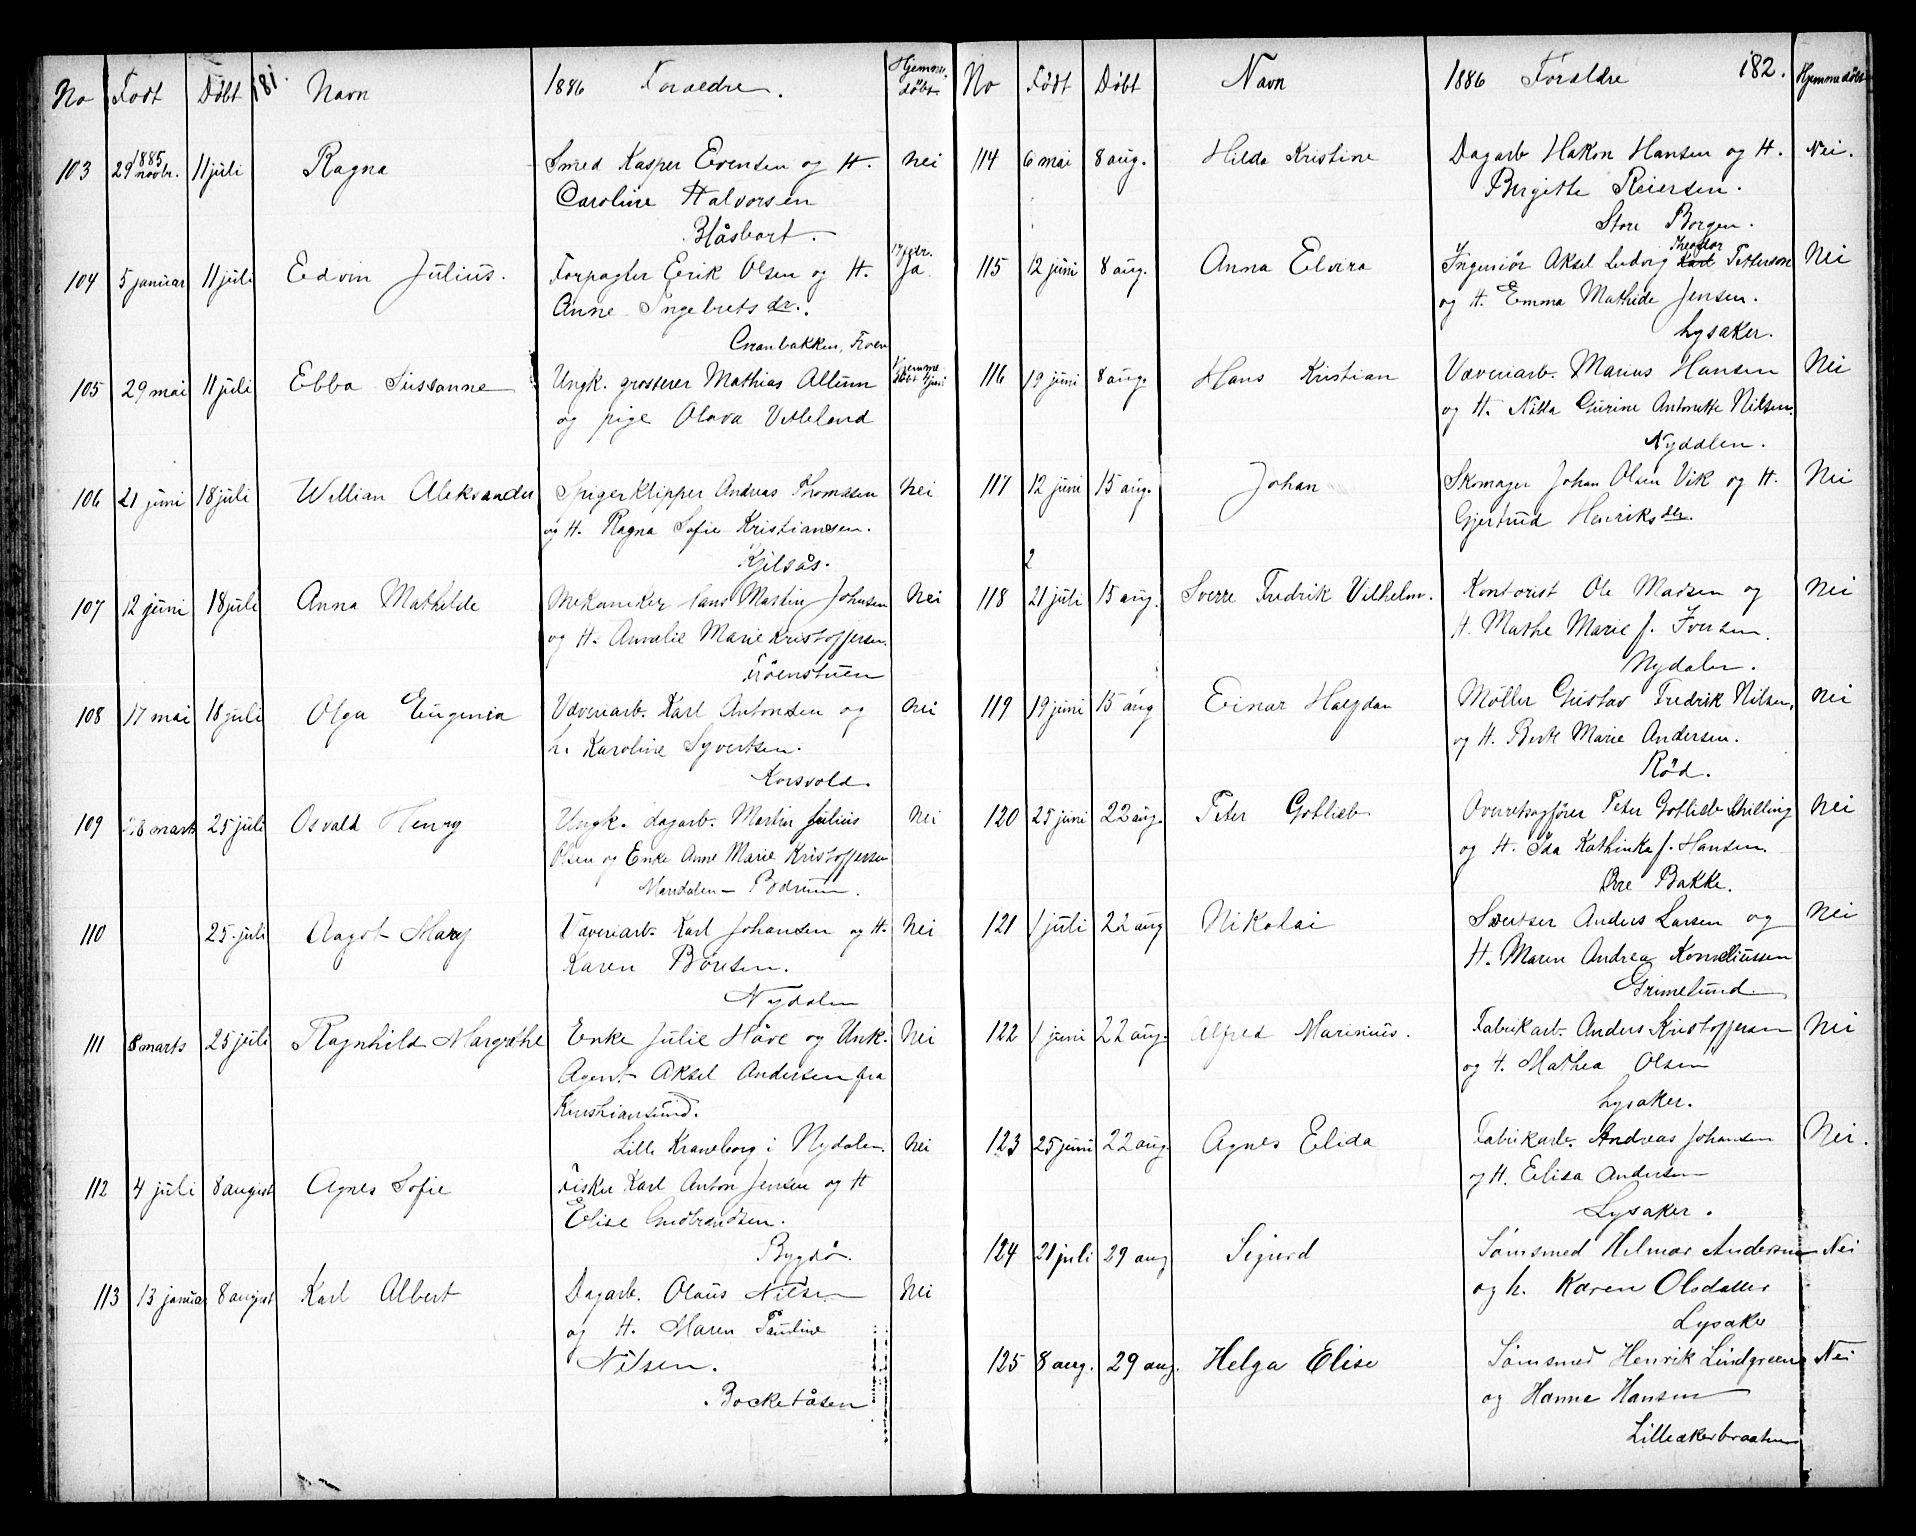 No Født Døbt 181. Navn 1886 Foræedre. Hjemmedøbt
103 29 novbr. 1885 11 juli Ragna Smed Kasper Evensen og H. Nei
Caroline Halvorsen
Blåsbort.
104 5 januar 11 juli Edvin Julius. Forpagter Erik Olsen og H. Ja.
Anne Ingebretsdr.
105 29 mai 11 juli Ebba Sussanne Ungk. grosserer Mathias Allum Hjemmedøbt
og pige Olava Vitteland
106 21 juni 18 juli Willian Aleksander Spigerklipper Andreas Thomasen Nei
og H. Ragna Sofie Kristiansen.
Kjelsås.
107 12 juni 18 juli Anna Mathilde Mekaniker Hans Martin Johnsen Nei
og H. Amalie Marie Kristoffersen.
Frøenstuen
108 17 mai 18 juli Olga Eugenia Væveriarb. Karl Antonsen og Nei
h. Karoline Syvertsen.
Korsvold.
109 28 marts 25 juli Osvald Henry Ungk. dagarb. Martin Julius Nei
Olsen og Enke Anne Marie Kristoffersen
110 25. juli Aagot Mary Væveriarb. Karl Johansen og H. Nei
Karen Børesen.
Nydalen
111 8 marts 25 juli Ragnhild Margrethe Enke Julie Håve og Unk. Nei
Agent Aksel Andersen fra
Kristiansund.
Lille Kraneborg i Nydalen. Nei
112 4 juli 8 august Agnes Sofie Fisker Karl Anton Jensen og H
Elise Gudbrandsen.
Bygdø.
113 13 januar 8 august Karl Albert Dagarb. Olaus Nilsen Nei
og H. Maren Pauline
Nilsen.
Bockeråsen
No Født Døbt Navn 1886 Foraldre 182. Hjemmedøbt
114 6 mai 8 aug. Hilda Kristine Dagarb Hakon Hansen og H. Nei.
Birgitte Reiersen.
Store Borgen.
Theodor
115 12 juni 8 aug. Anna Elvira Ingeniør Aksel Ludvig Karl Petterson Nei
og H. Emma Mathide Jensen.
Lysaker.
116 19 juni 8 aug. Hans Kristian Væveriarb. Marius Hansen Nei
og H. Nilla Gurine Antonette Nilsen.
Nyddlen.
117 12 juni 15 aug. Johan Skomager Johan Olsen Vik og H. Nei
Gjertrud Henriksdr.
2
118 21 juli 15 aug. Sverre Fredrik Vilhelm. Kontorist Ole Madsen og Nei
H. Mathe Marie J. Iversen.
Nydalen.
119 19 juni 15 aug Einar Halfdan Møller Gustav Fredrik Nilsen, Nei
og H. Berte Marie Andersen.
Rød.
120 25 juni 22 aug. Peter Gotlieb Overretsagfører Peter Gotlieb Schilling Nei
og H. Ida Kathinka J. Hansen.
Øvre Bakke.
121 1 juli 22 aug Nikolai Svertser Anders Larsen og Nei
H. Maren Andrea Korneliussen
Grimelund.
122 1 juni 22 aug. Alfred Marinius. Fabrikarb. Anders Kristoffersen Nei
og H. Mathea Olsen
Lysaker.
123 25 juni 22 aug. Agnes Elida Fabrikarb. Andreas Johansen Nei.
og H. Elisa Andersen
Lysaker.
124 21 juli 29 aug Sigurd Sømsmed Hilmar Andersen Nei
og h. Karen Olsdatter
Lysaker
125 8 aug. 29 aug. Helga Elise Sømsmed Henrik Lindgreen Nei
og Hanne Hansen
Lilleakerbraaten